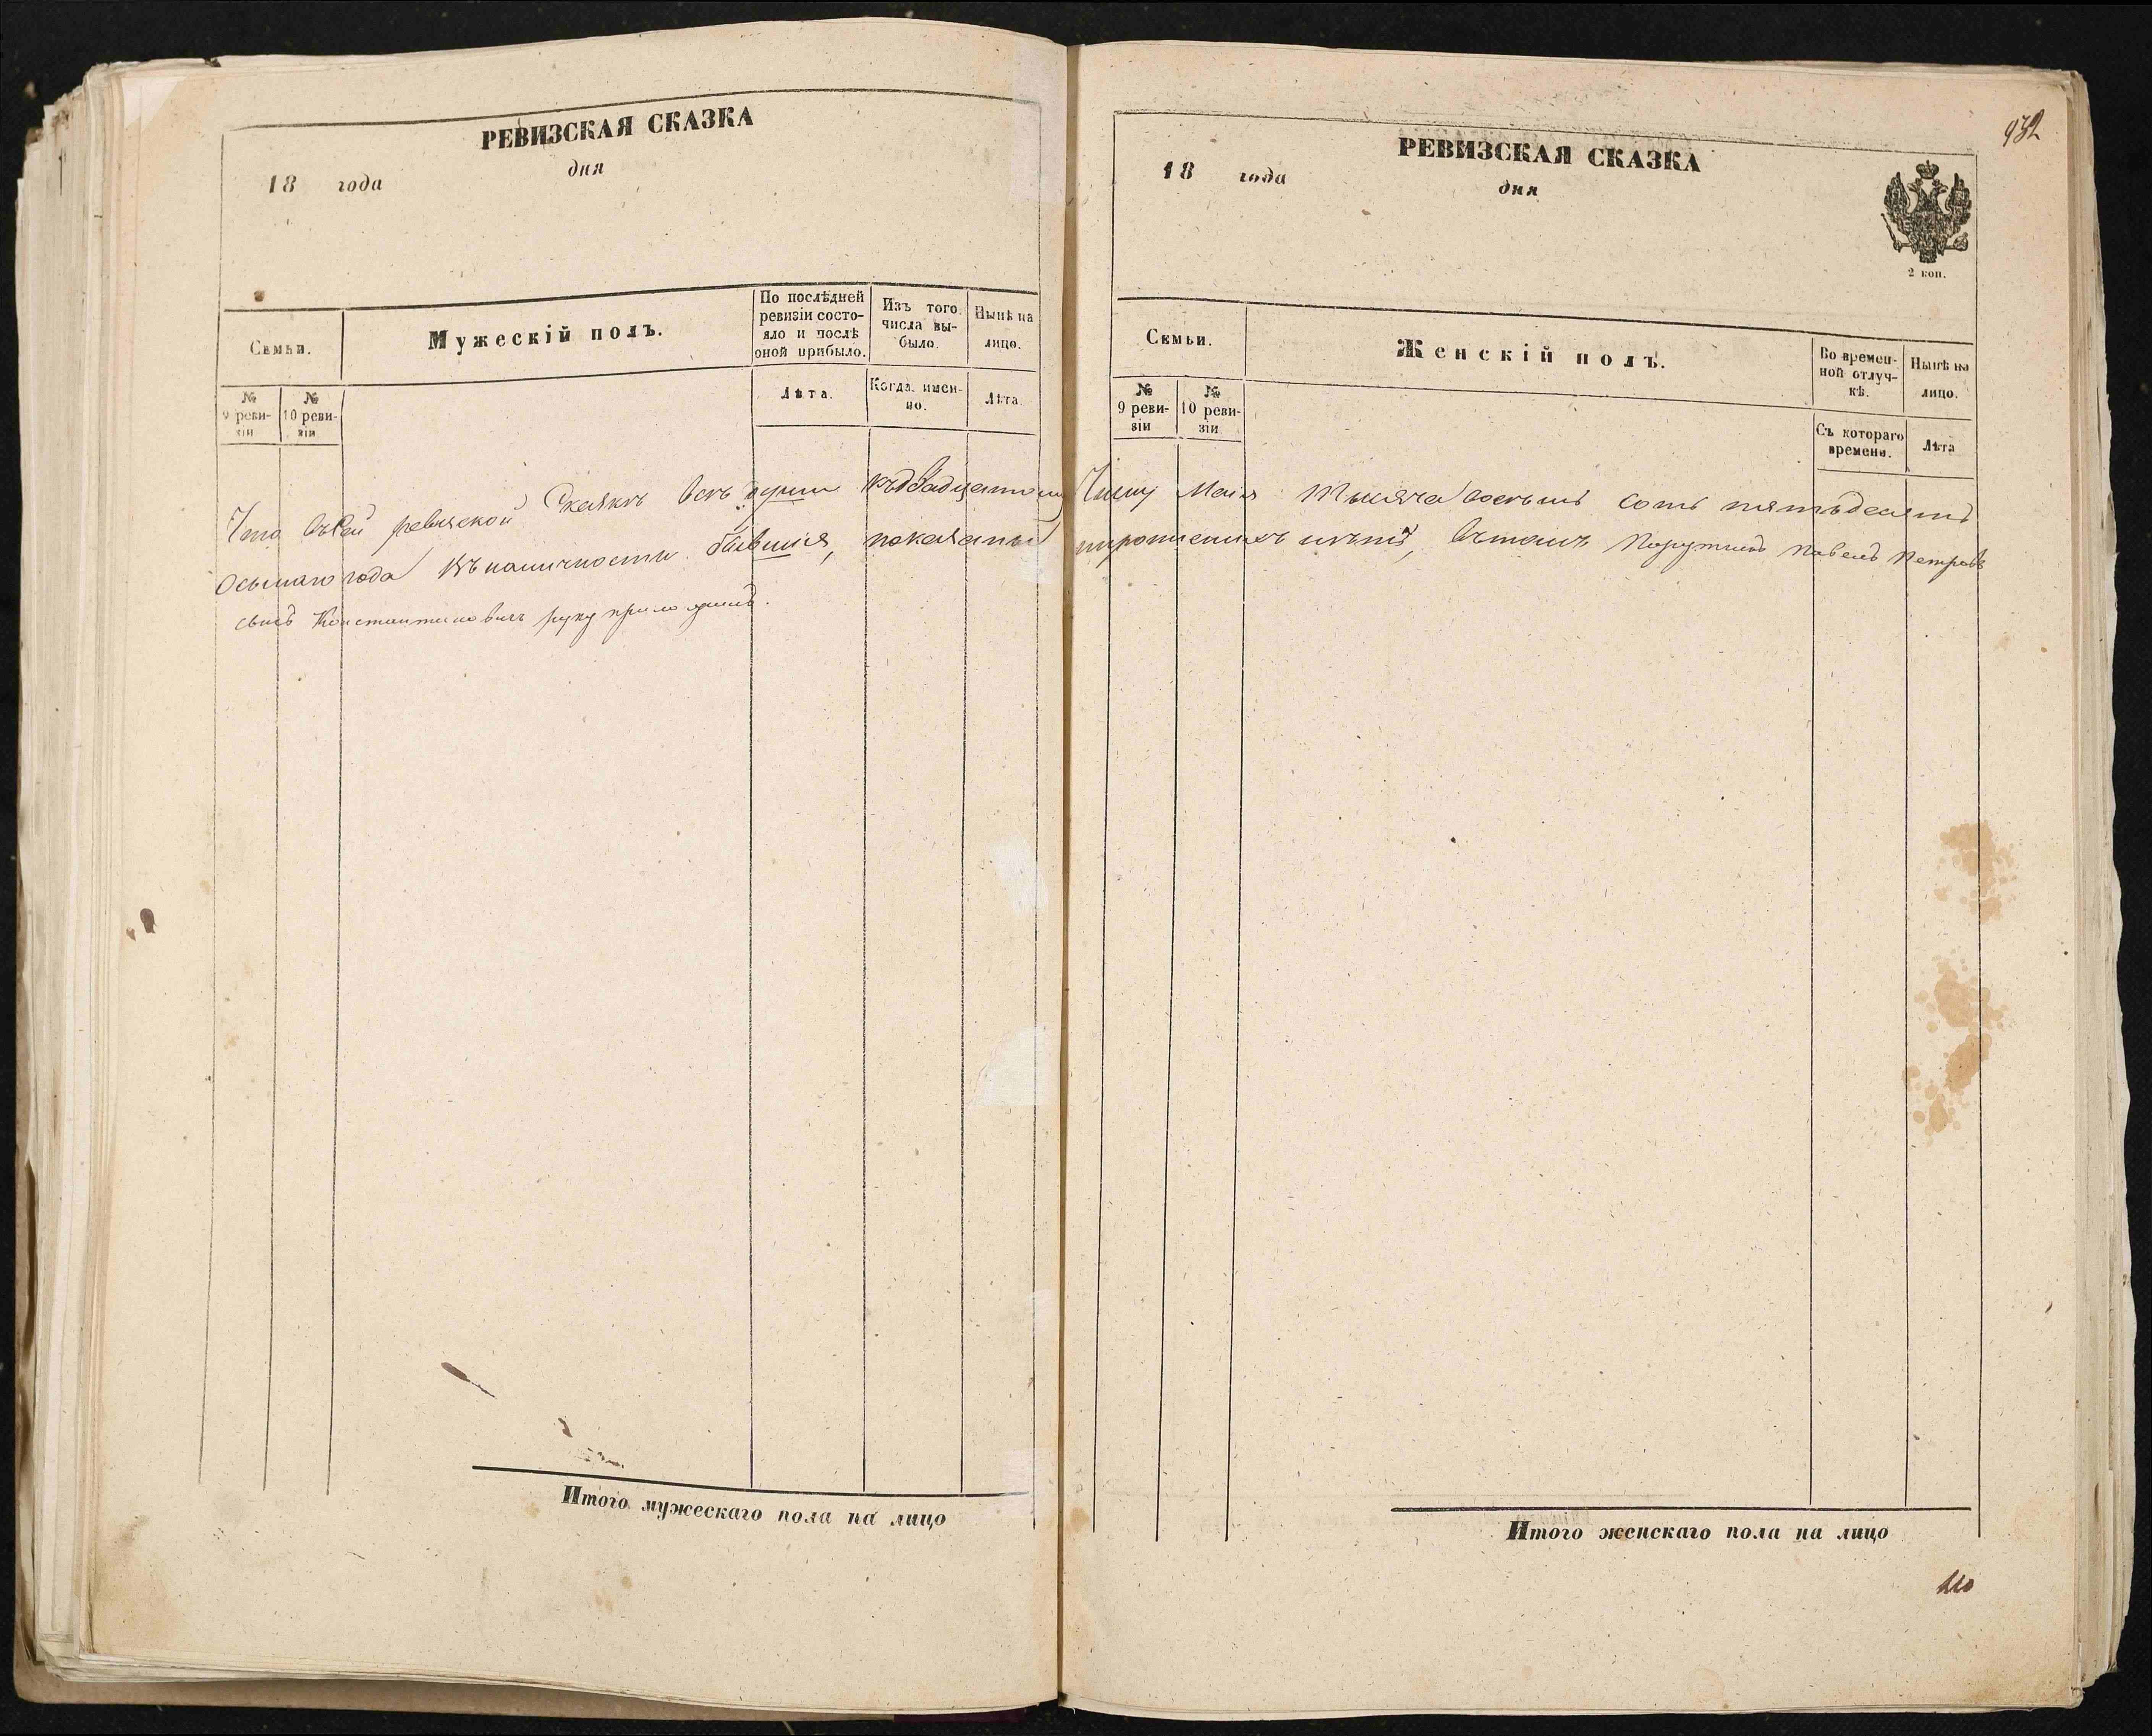 РЕВИЗСКАЯ СКАЗКА
18 года
дня
Семьи.
Мужескій полъ.
По послѣдней ревизіи состояло и послѣ оной прибыло.
Изъ того числа выбыло.
Нынѣ на лицо.
№ 9 ревизіи
№ 10 ревизіи
Лѣта.
Когда именно.
Лѣта.
Что въ сей ревизской Сказкѣ всѣ души къ двадцатому
осьмаго года въ наличности бывшія, показаны
сынъ Константиновичъ руку приложилъ.
Итого мужескаго пола на лицо
932
РЕВИЗСКАЯ СКАЗКА
18 года
дня
2 коп.
Семьи.
Женскій полъ.
Во временной отлучкѣ.
Нынѣ на лицо.
№ 9 ревизіи
№ 10 ревизіи
Съ котораго времени.
Лѣта
Числу Маія тысяча восемь сотъ пятьдесятъ
и прописныхъ нѣтъ, въ томъ Поручикъ Павелъ Петровъ
Итого женскаго пола на лицо
110